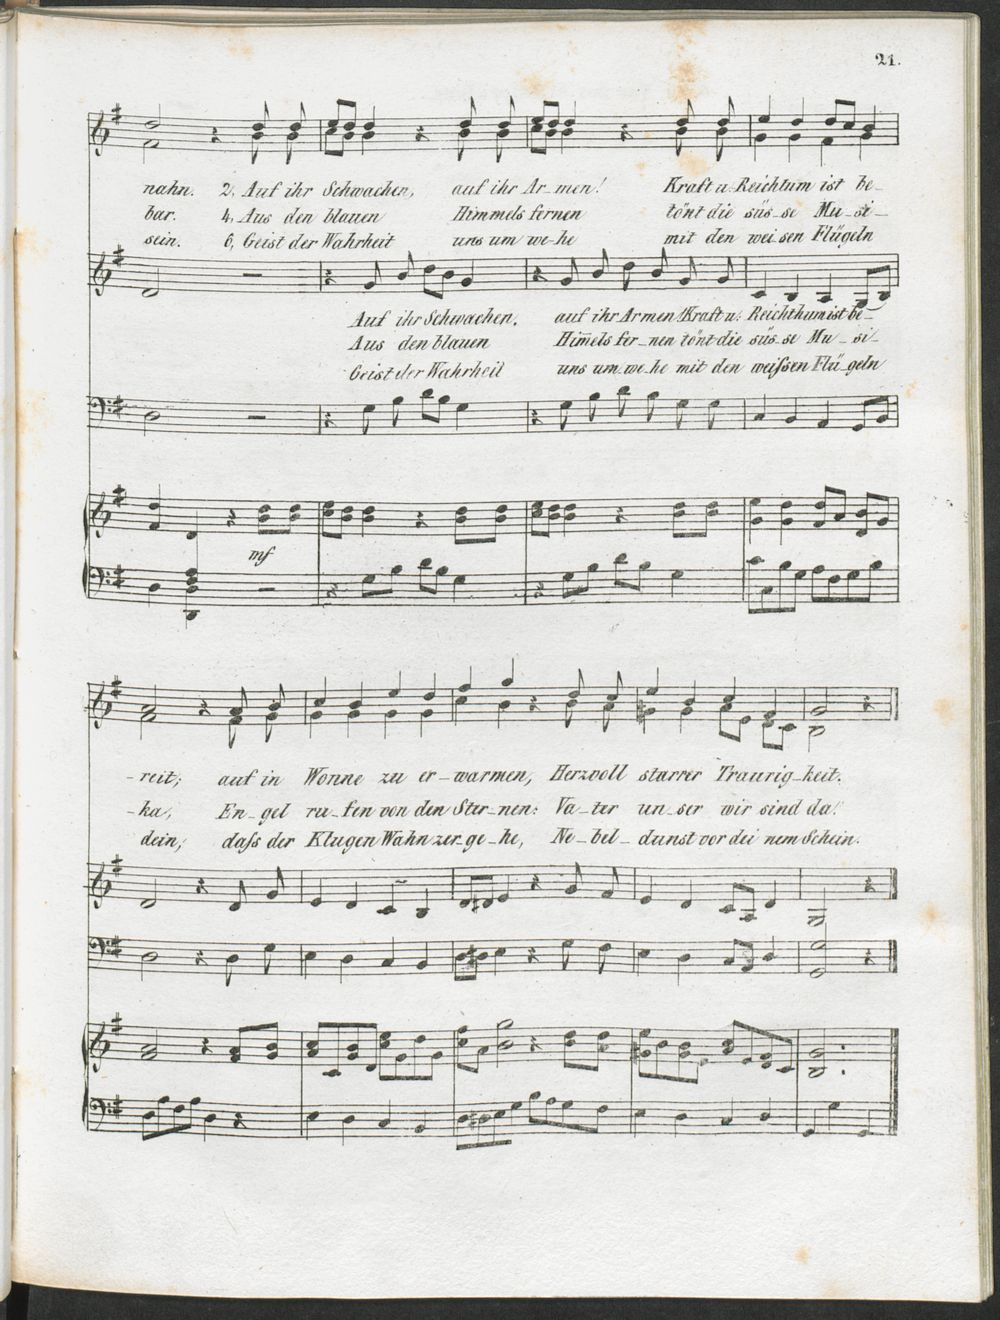 21.
nahn. 2, Auf ihr Schwachen, auf ihr Ar-men! Kraft u: Reichtum ist be-
bar. 4, Aus den blauen Himmels fernen tönt die süs-se Mu-si-
sein. 6, Geist der Wahrheit uns um we-he mit den wei-sen Flügeln
Auf ihr Schwachen, auf ihr Armen! Kraft u: Reichthum ist be-
Aus den blauen Him̅els fer-nen tönt die süs-se Mu-si-
Geist der Wahrheit uns um-we-he mit den weiſsen Flü-geln
mf
-reit; auf in Wonne zu er-warmen, Herzvoll starrer Traurig-keit.
-ka, En-gel ru-fen von den Ster-nen: Va-ter un-ser wir sind da!
dein; daſs der Klugen Wahn zer-ge-he, Ne-bel-dunst vor dei nem Schein.